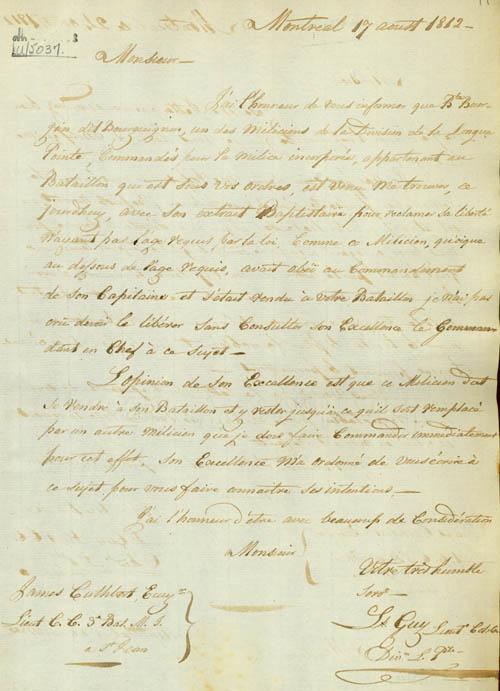 Montreal 17 aoust 1812
U/5037.
Monsieur
J'ai l'honneur de vous informer que Bte Bour-
gien dit Bourguignon, un des Miliciens de la Division de la Longue
Pointe, Commandés pour la milice incorporée, appartenant au
Bataillon qui est sous vos ordres, est venu me trouver, ce
jourdhuy, avec son extrait Baptistaire pour reclamer sa liberté
n'ayant pas l'age requis par la loi. Comme ce Milicien, quoique
au dessous de l'age requis, avait obéi au Commandement
de son Capitaine et s'était rendu à votre Bataillon je n'ai pas
crû devoir le libérer sans Consulter son Excellence le Comman
dant en Chef à ce sujet
L'opinion de Son Excellence est que ce Milicien doit
se rendre à son Bataillon et y rester jusqu'à ce qu'il soit remplacé
par un autre milicien que je dois faire Commander immédiatement
pour cet effet. Son Excellence m'a ordonné de vous écrire à
ce sujet pour vous faire connaitre ses intentions
J'ai l'honneur d'être avec beaucoup de Considération
Monsieur
Votre très humble
Servr
James Cuthbert, Ecuyr
Lieut C. C. 3e Bat. M. I.
a St Jean
Ls Guy Lieut Col.
Divn L. Pte